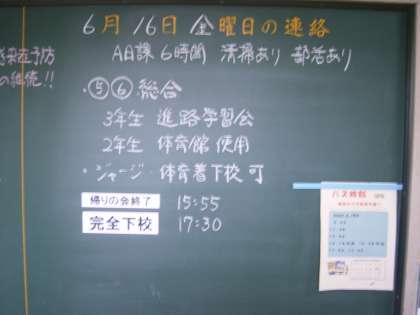 6月16日 金曜日の連絡
A日課 6時間 清掃あり 部活あり
・⑤⑥ 総合
3年生 進路学習会
2年生 体育館 使用
・ジャージ・体育着下校 可
帰りの会終了 15:55
完全下校 17:30
予防
の継続!!
バス時刻